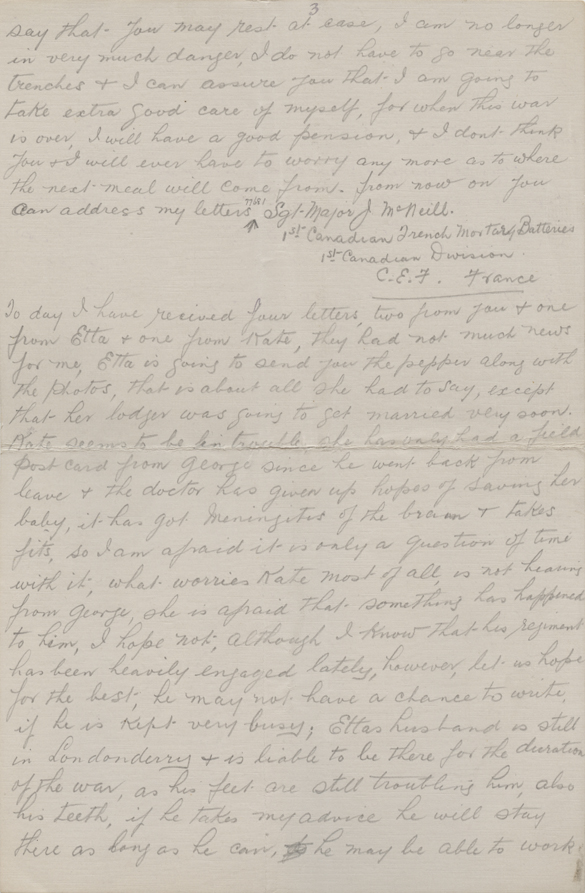 3
say that you may rest at ease, I am no longer
in very much danger, I do not have to go near the
trenches & I can assure you that I am going to
take extra good care of myself, for when this war
is over, I will have a good pension, & I dont think
you & I will ever have to worry any more as to where
the next meal will come from. from now on you
can address my letters Sgt-Major J McNeill.
1st Canadian Trench Mortary Batteries
1st Canadian Division.
C.E.F. France
To day I have recived four letters, two from you & one
from Etta & one from Kate, they had not much news
for me, Etta is going to send you the pepper along with
the photos, that is about all she had to say, except
that her lodger was going to get married very soon.
Kate seems to be in trouble, she has only had a field
post card from George since he went back from
leave & the doctor has given up hopes of saving her
baby, it has got Meningites of the brain & takes
fits, so I am afraid it is only a question of time
with it, what worries Kate most of all, is not hearing
from George, she is afraid that something has happened
to him, I hope not, although I know that his regiment
has been heavily engaged lately, however, let us hope
for the best, he may not have a chance to write,
if he is kept very busy; Ettas husband is still
in Londonderry & is liable to be there for the duration
of the war, as his feet are still troubling him, also
his teeth, if he takes my advice he will stay
there as long as he can, he may be able to work